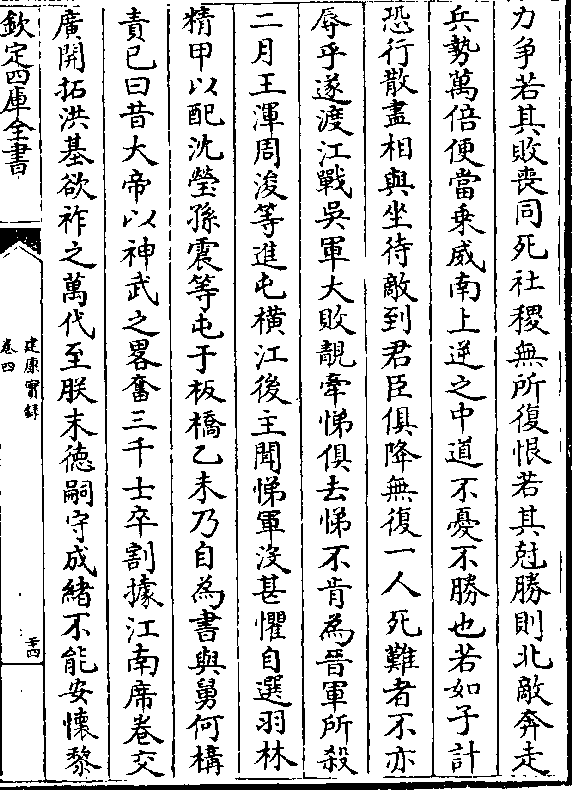 力争若其敗喪同死社稷無所復恨若其尅勝則北敵奔走
兵勢萬倍便當乗威南上逆之中道不憂不勝也若如子計
恐行散盡相與坐待敵到君臣俱降無復一人死難者不亦
辱乎遂渡江戰吳軍大敗靚牽悌俱去悌不肯為晉軍所殺
二月王渾周浚等進屯橫江後主聞悌軍沒甚懼自選羽林
精甲以配沈瑩孫震等屯于板橋乙未乃自為書與舅何構
責己曰昔大帝以神武之畧奮三千士卒割據江南席卷交
廣開拓洪基欲祚之萬代至朕末徳嗣守成緒不能安懷黎
欽定四庫全書
建康實錄
卷四
二十四